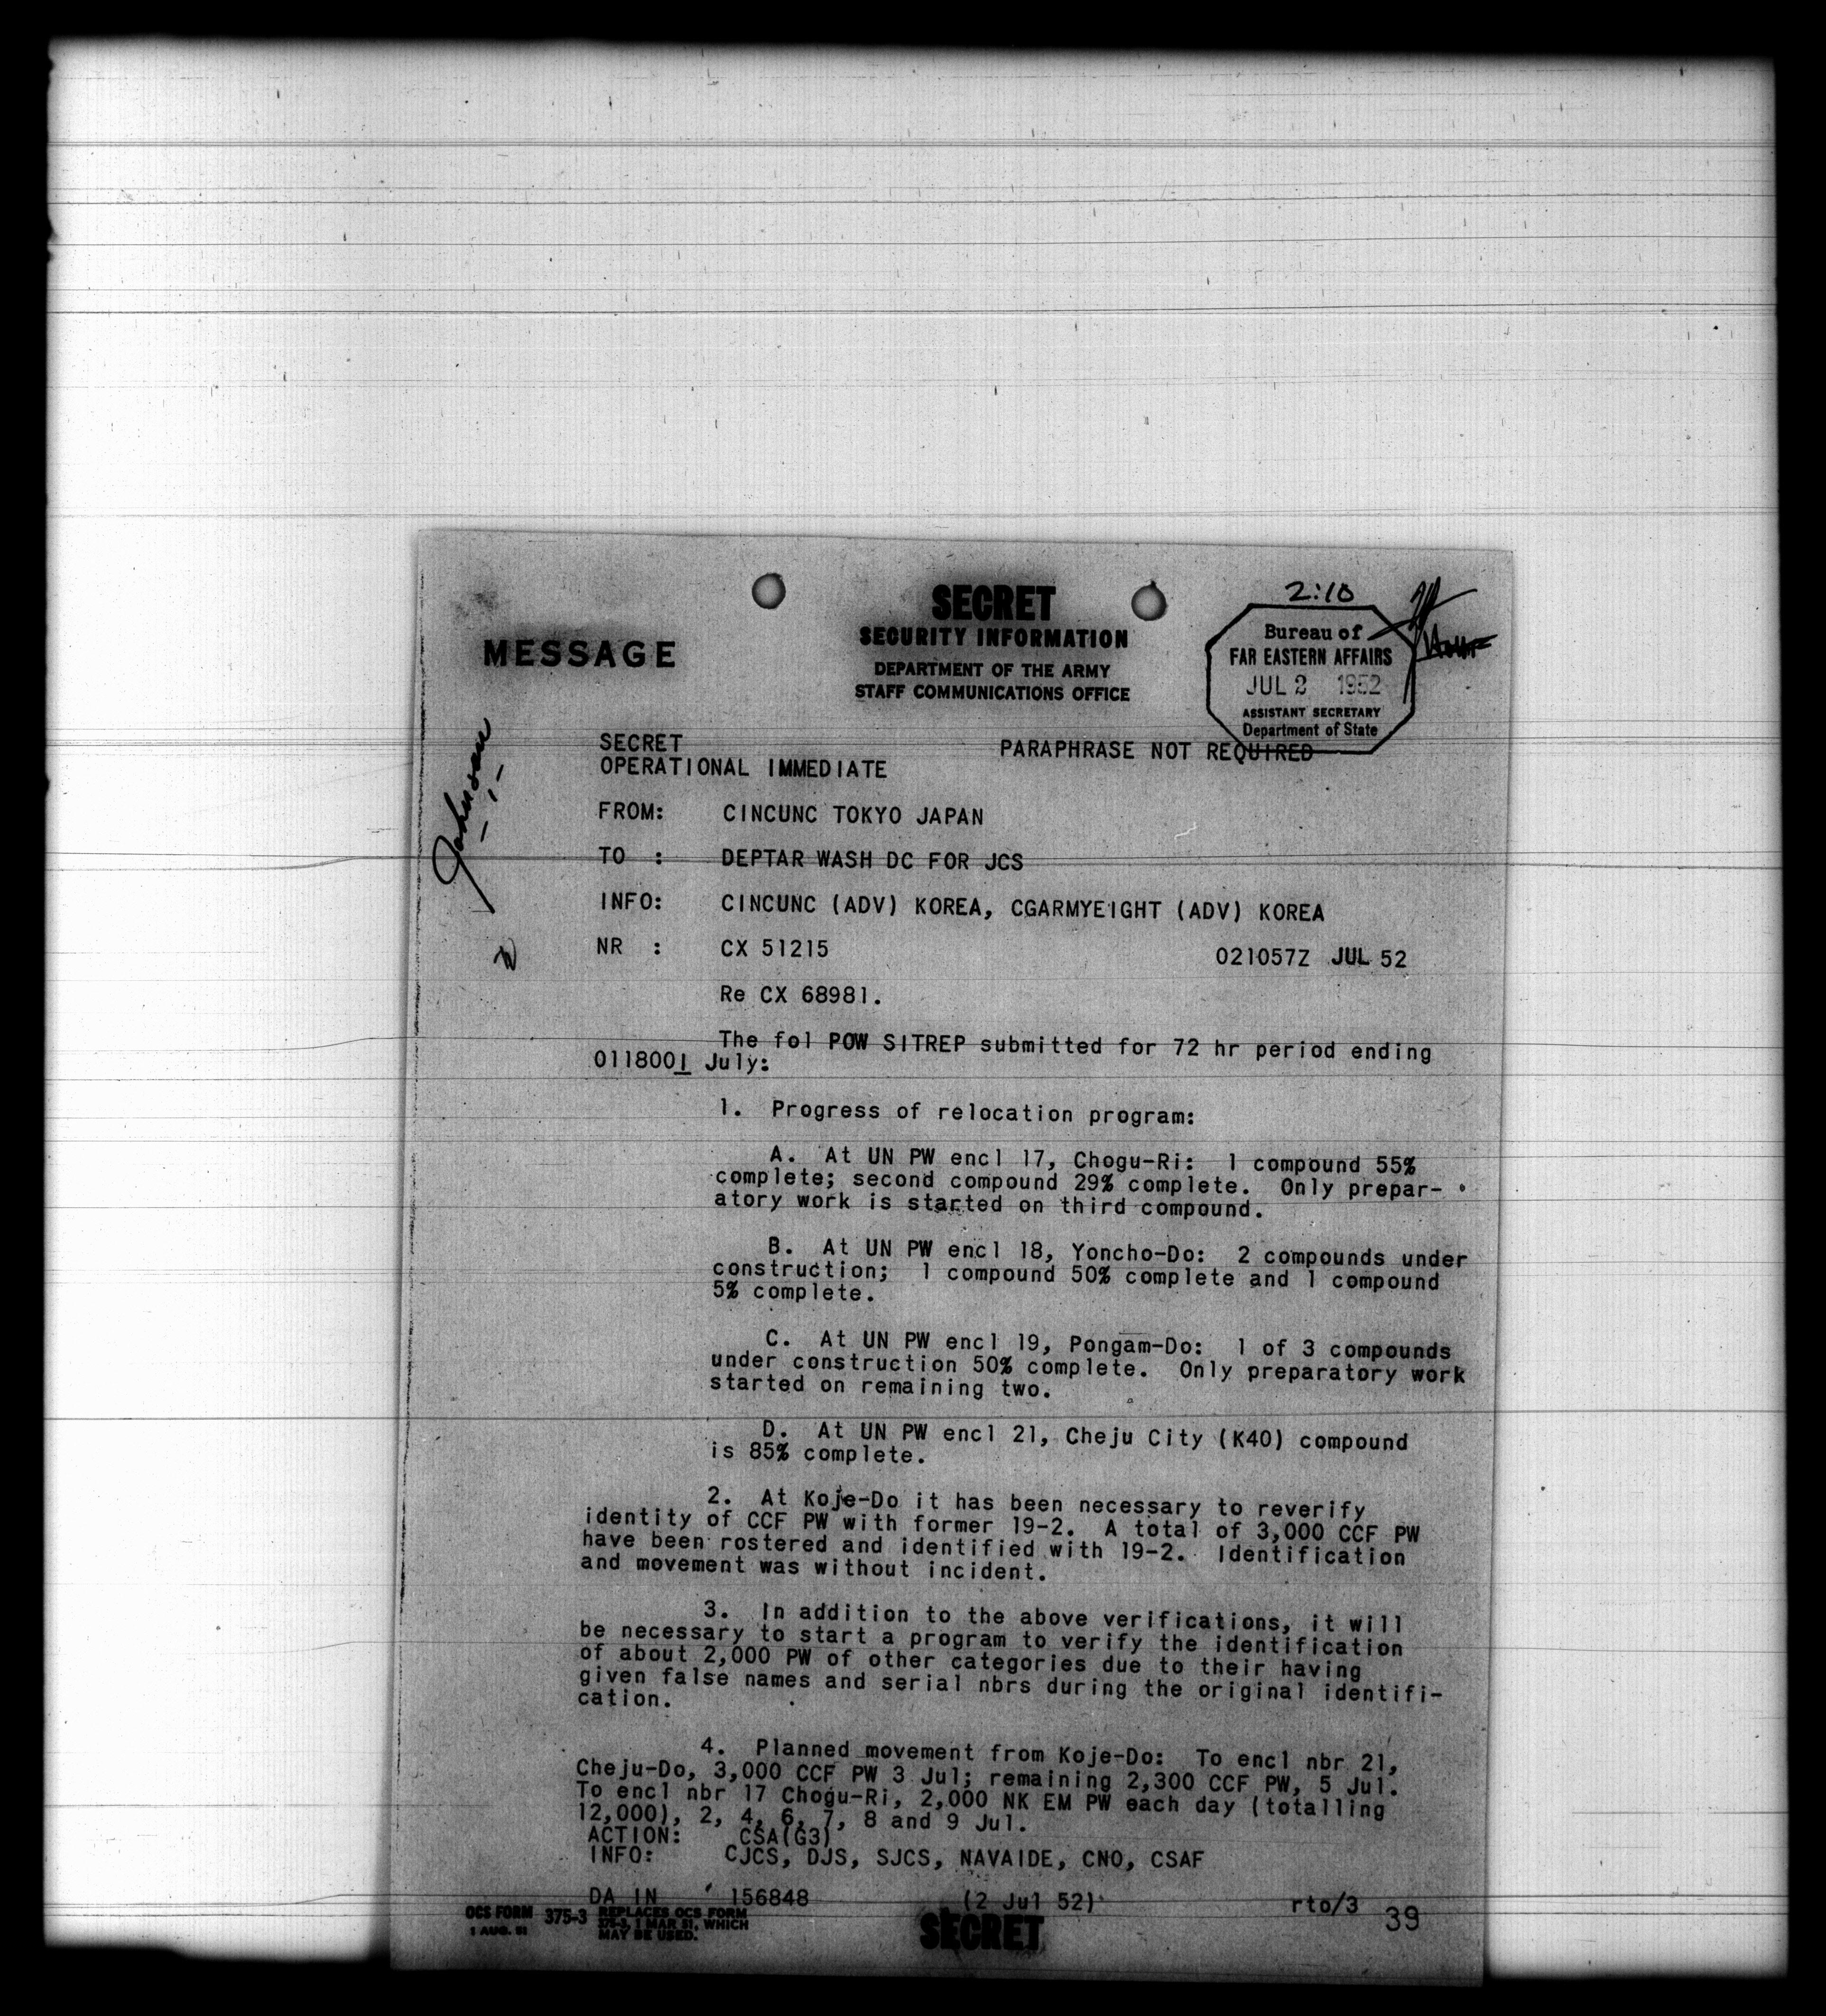 2:10
SECRET
SECURITY INFORMATION
MESSAGE
DEPARTMENT OF THE ARMY
STAFF COMMUNICATIONS OFFICE
Bureau of
FAR EASTERN AFFAIRS
JUL 2 1952
ASSISTANT SECRETARY
Department of State
Johnson
SECRET
PARAPHRASE NOT REQUIRED
OPERATIONAL IMMEDIATE
FROM: CINCUNC TOKYO JAPAN
TO : DEPTAR WASH DC FOR JCS
INFO: CINCUNC (ADV) KOREA, CGARMYEIGHT (ADV) KOREA
NR : CX 51215 021057Z JUL 52
Re CX 68981.
The fol POW SITREP submitted for 72 hr period ending
011800I July:
1. Progress of relocation program:
A. At UN PW encl 17, Chogu-Ri: 1 compound 55%
complete; second compound 29% complete. Only prepar-
atory work is started on third compound.
B. At UN PW encl 18, Yoncho-Do: 2 compounds under
construction; 1 compound 50% complete and 1 compound
5% complete.
C. At UN PW encl 19, Pongam-Do: 1 of 3 compounds
under construction 50% complete. Only preparatory work
started on remaining two.
D. At UN PW encl 21, Cheju City (K40) compound
is 85% complete.
2. At Koje-Do it has been necessary to reverify
identity of CCF PW with former 19-2. A total of 3,000 CCF PW
have been rostered and identified with 19-2. Identification
and movement was without incident.
3. In addition to the above verifications, it will
be necessary to start a program to verify the identification
of about 2,000 PW of other categories due to their having
given false names and serial nbrs during the original identifi-
cation.
4. Planned movement from Koje-Do: To encl nbr 21,
Cheju-Do, 3,000 CCF PW 3 Jul; remaining 2,300 CCF PW, 5 Jul.
To encl nbr 17 Chogu-Ri, 2,000 NK EM PW each day (totalling
12,000), 2, 4, 6, 7, 8 and 9 Jul.
ACTION: CSA(G3)
INFO: CJCS, DJS, SJCS, NAVAIDE, CNO, CSAF
DA IN 156848 (2 Jul 52) rto/3
OCS FORM 375-3 REPLACES OCS FORM
1 AUG. 51 375-3, 1 MAR 51, WHICH
MAY BE USED.
SECRET
39